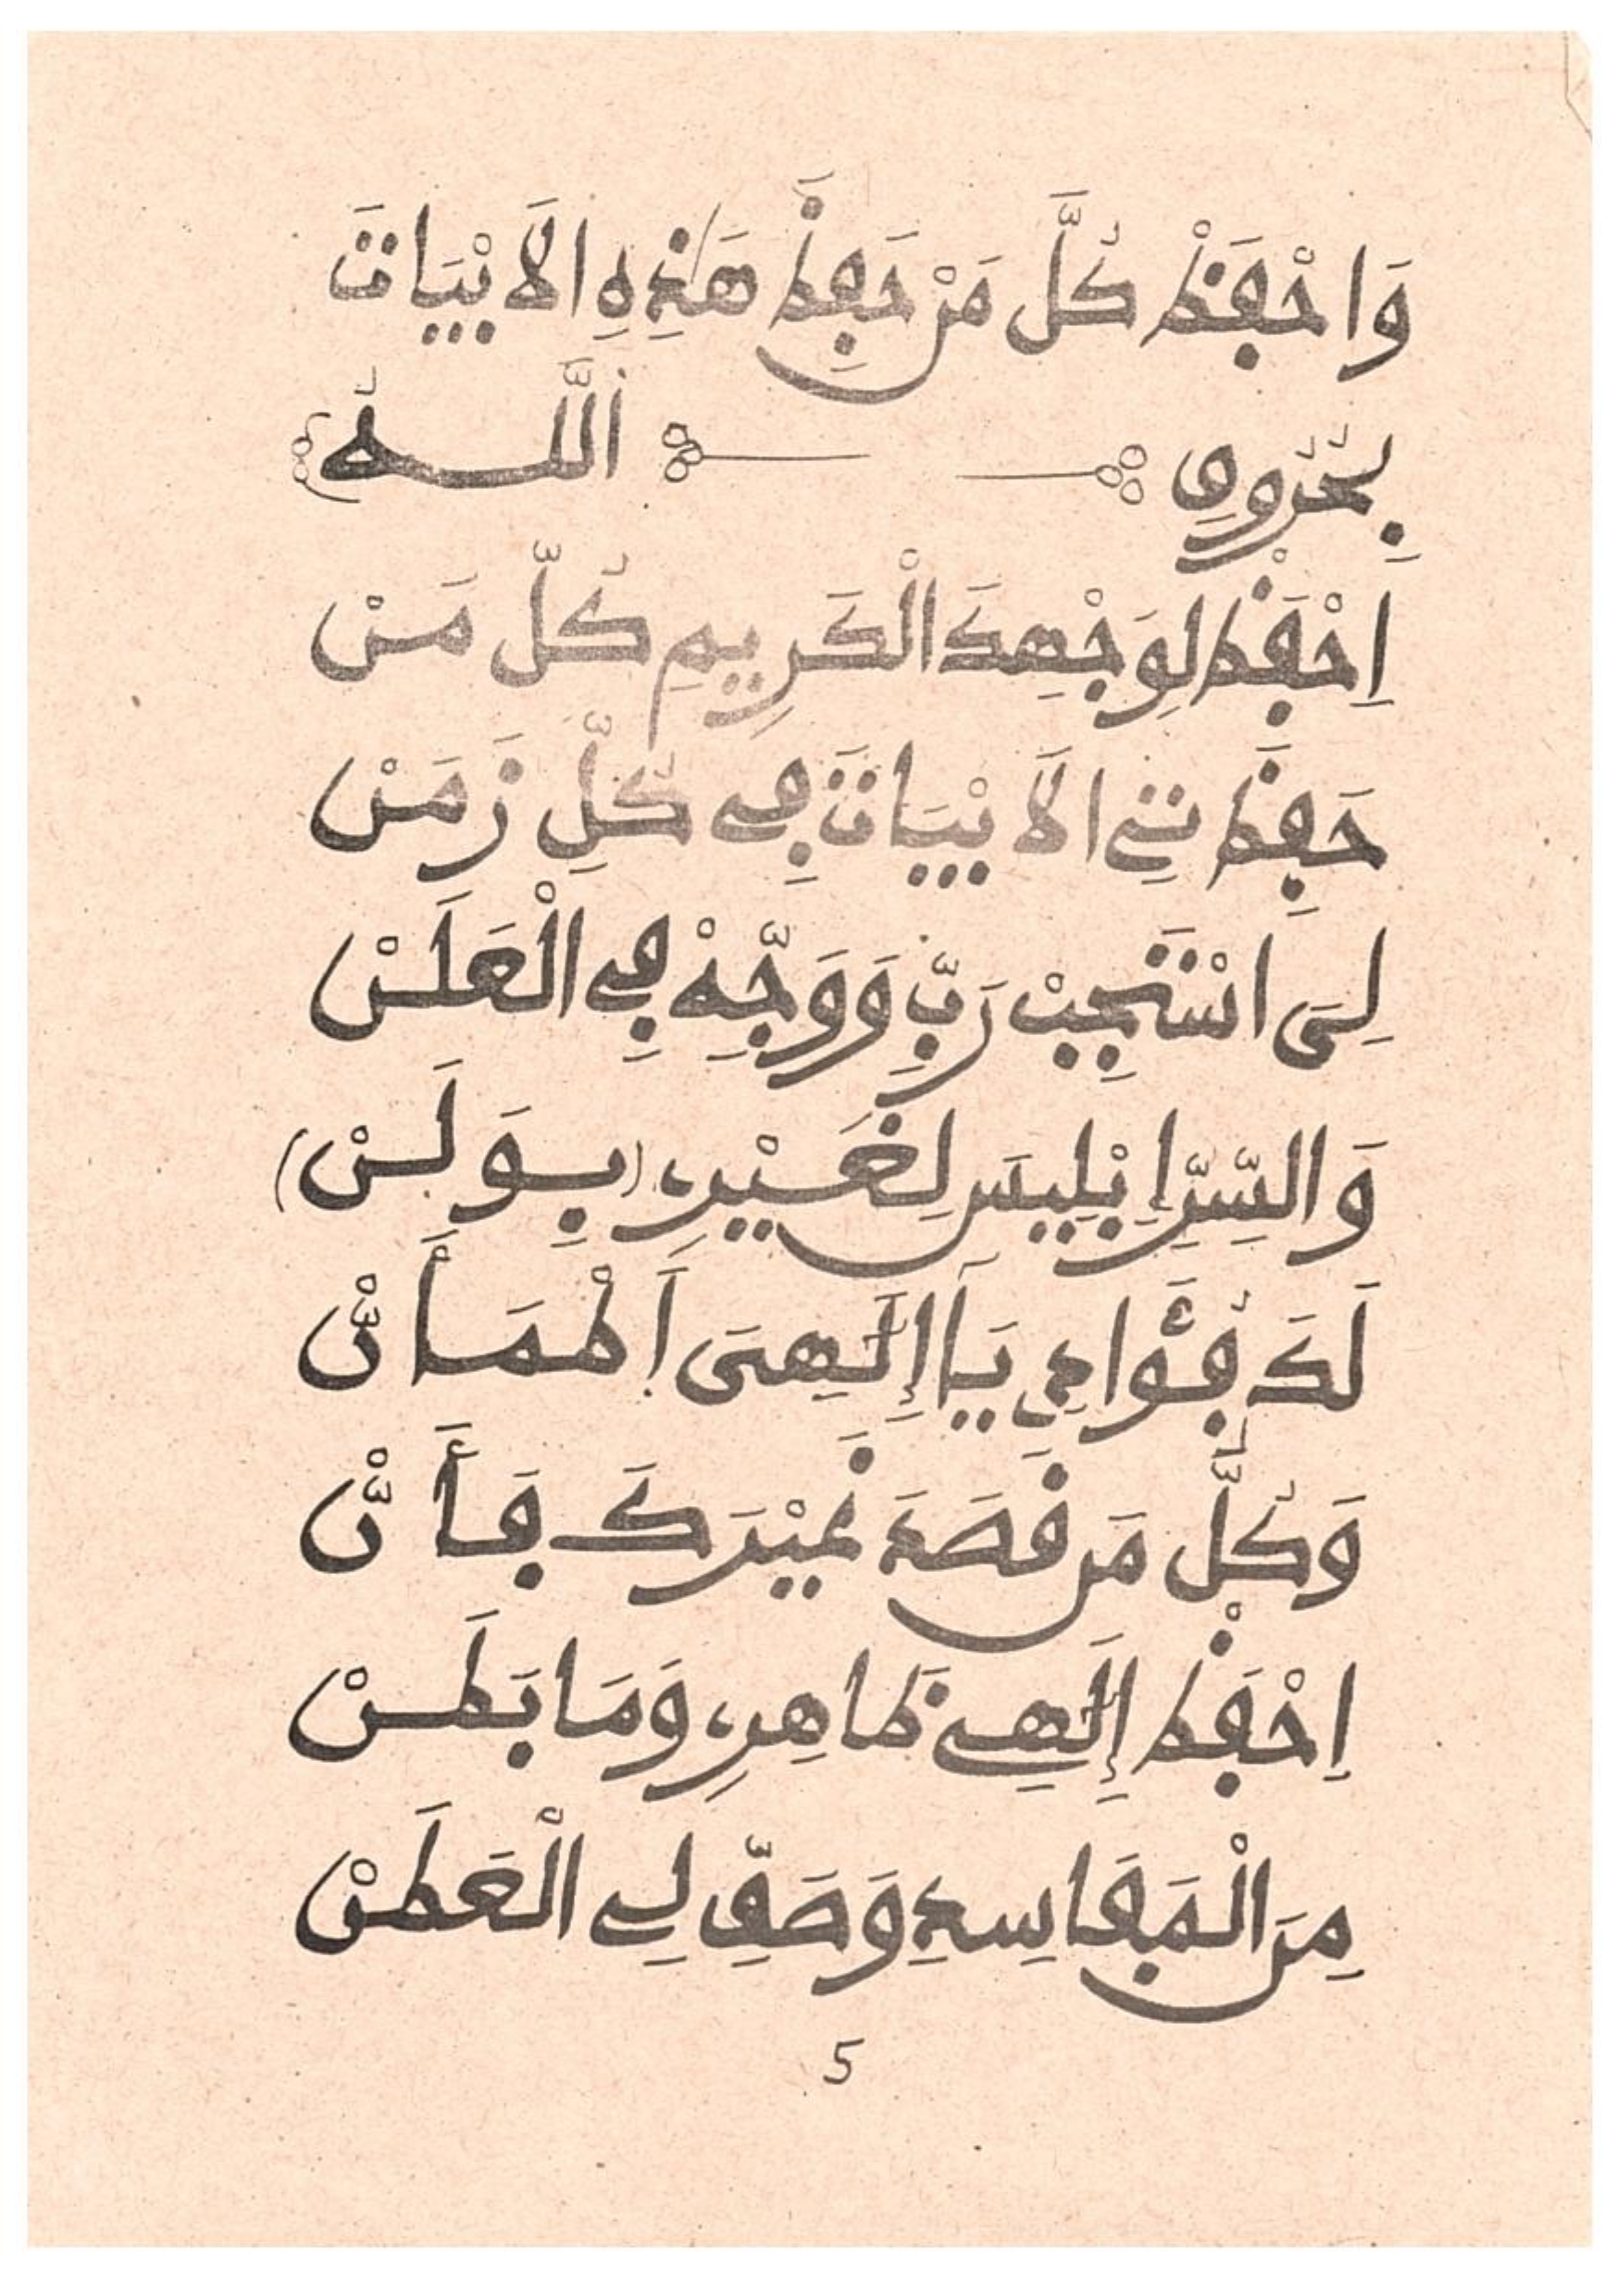 وَاحْفَظْ كُلَّ مَنْ حَفِظَ هَذِهِ الَابْيَاتَ
بِحُرُوفِ اَللَّهُ
اِحْفَظْ لِوَجْهِكَ الْكَرِيمِ كُلَّ مَنْ
حَفِظَ ذِي الَابْيَاتَ فِي كُلِّ زَمَنْ
لِىَ اسْتَجِبْ رَبِّ وَوَجِّهْ فِي الْعَلَنْ
وَالسِّرِّ إِبْلِيسَ لِغَيْرِ (بِوَلَنْ)
لَكَ فُؤَادِي يَآ إِلَـٰهِىَ اَطْمَأَنّْ
وَكُلُّ مَن قَصَدَ غَيْرَكَ فَأَنّْ
اِحْفَظْ إِلَـٰهِي ظَاهِرِي وَمَا بَطَنْ
مِنَ الْمَفَاسِدِ وَصَفِّ لِي الْعَطَنْ
5